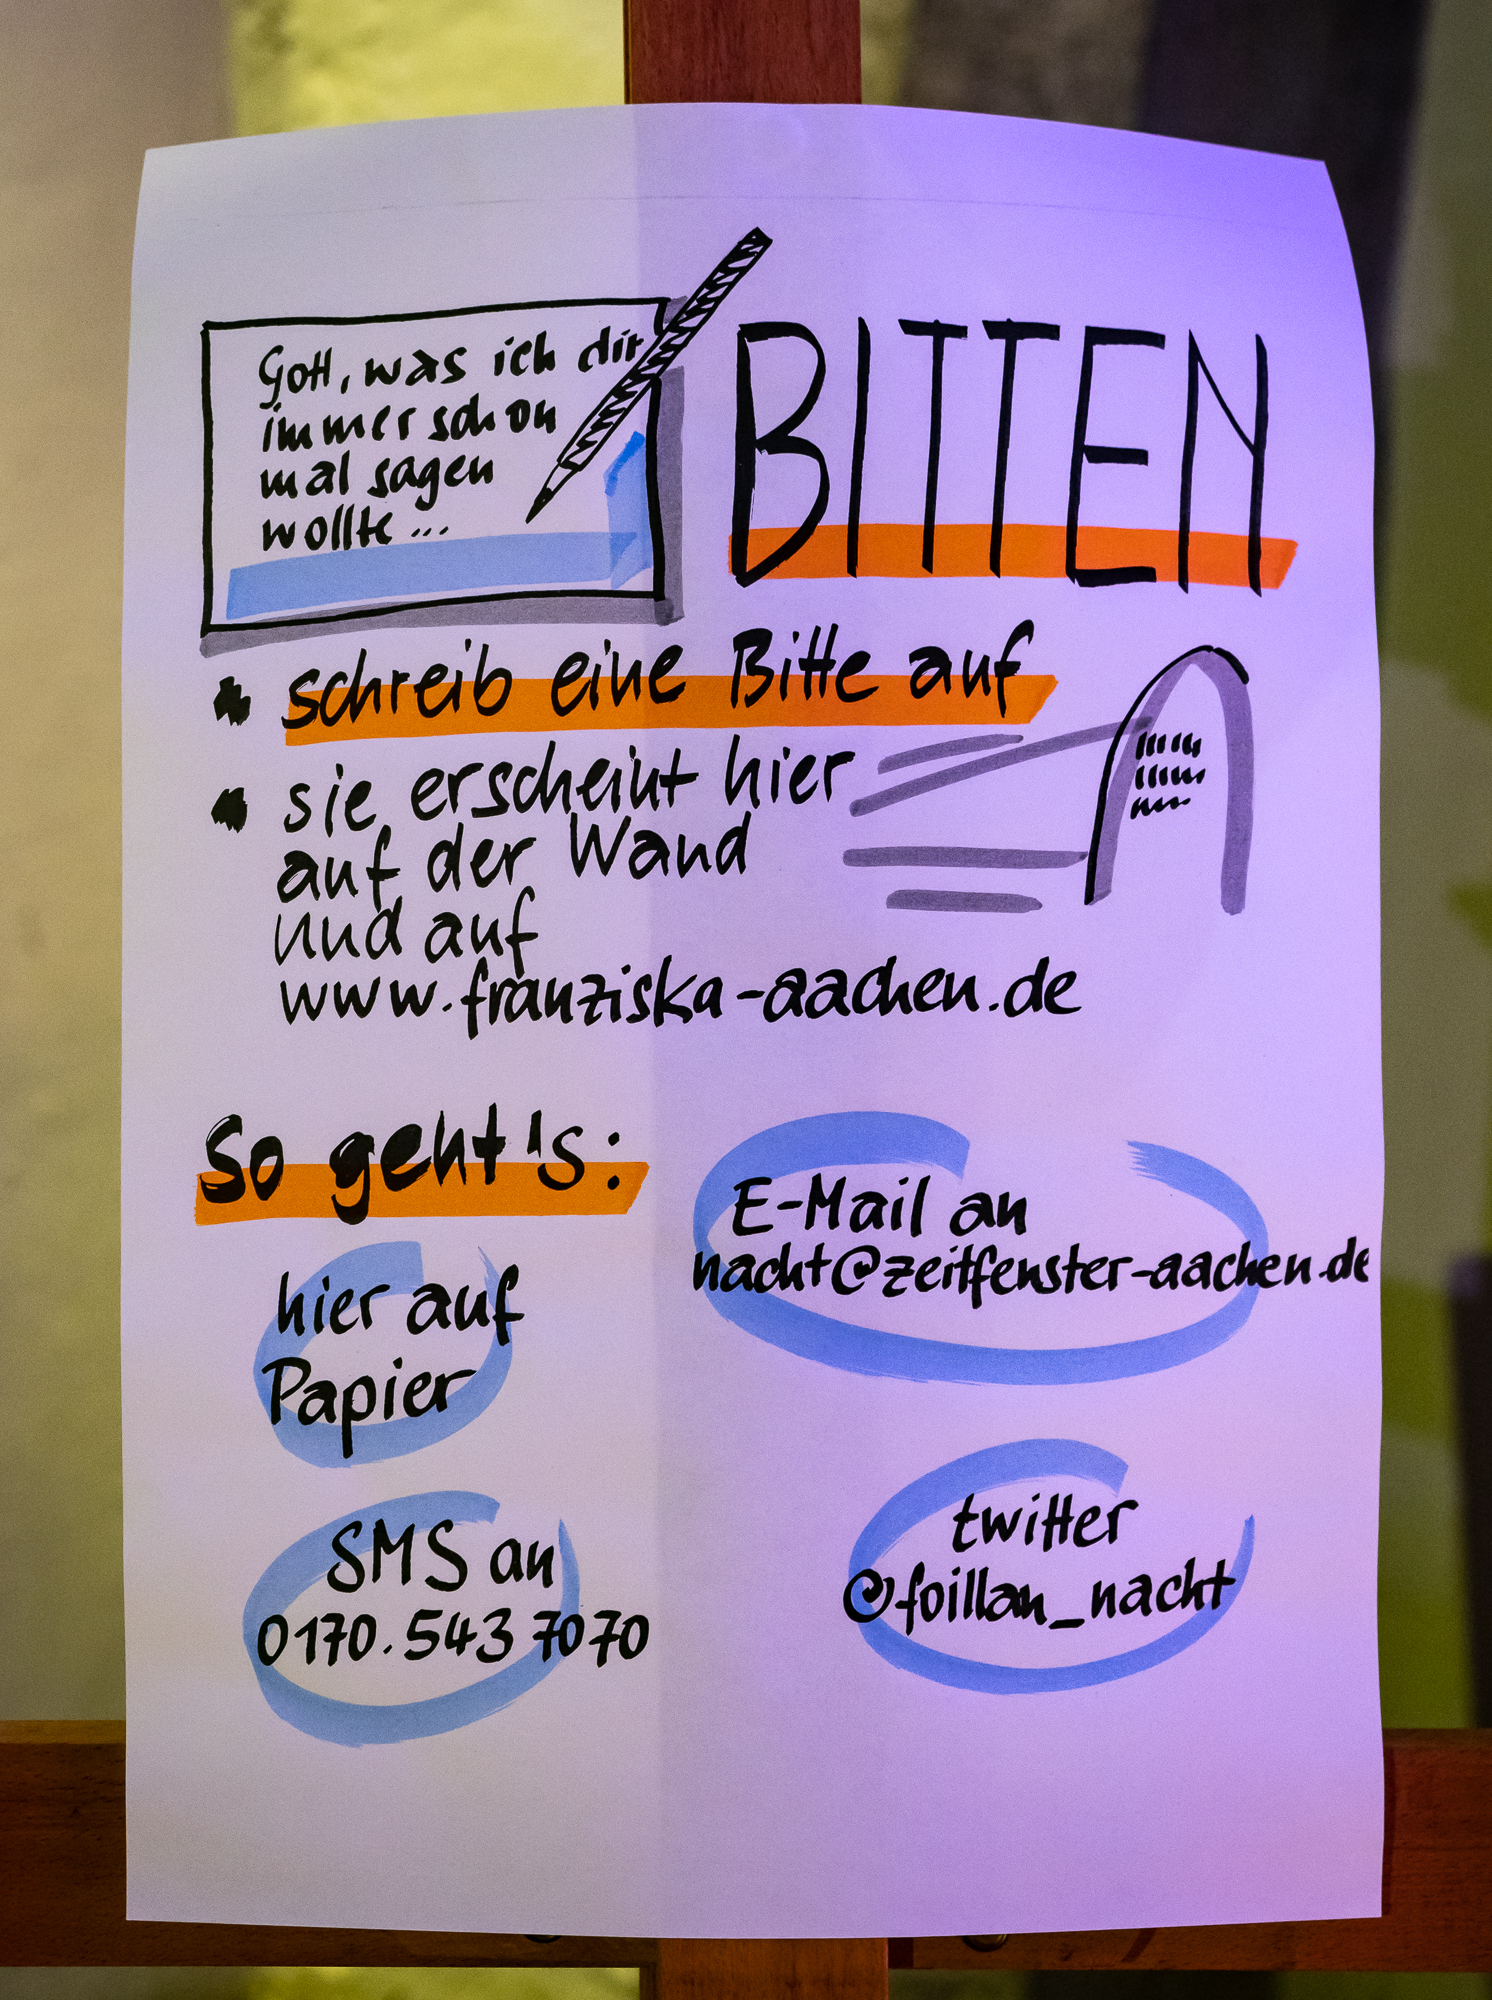 Gott, was ich dir
immer schon
mal sagen
wollte...
BITTEN
schreib eine Bitte auf
sie erscheint hier
auf der Wand
und auf
www.franziska-aachen.de
So geht's:
hier auf
Papier
SMS an
0170.543 7070
E-Mail an
nacht@zeitfenster-aachen.de
twitter
@foillan_nacht